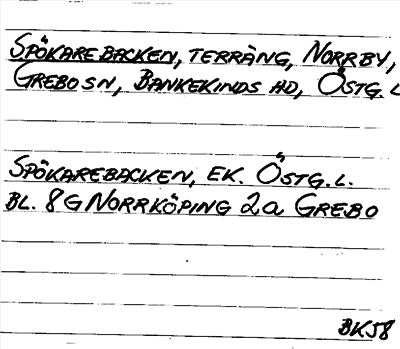 SPÖKAREBACKEN, TERRÄNG, NORRBY,
GREBO SN, BANKEKINDS HD, ÖSTG. L
SPÖKAREBACKEN, EK. ÖSTG. L.
BL. 8G NORRKÖPING 2a GREBO
BK58